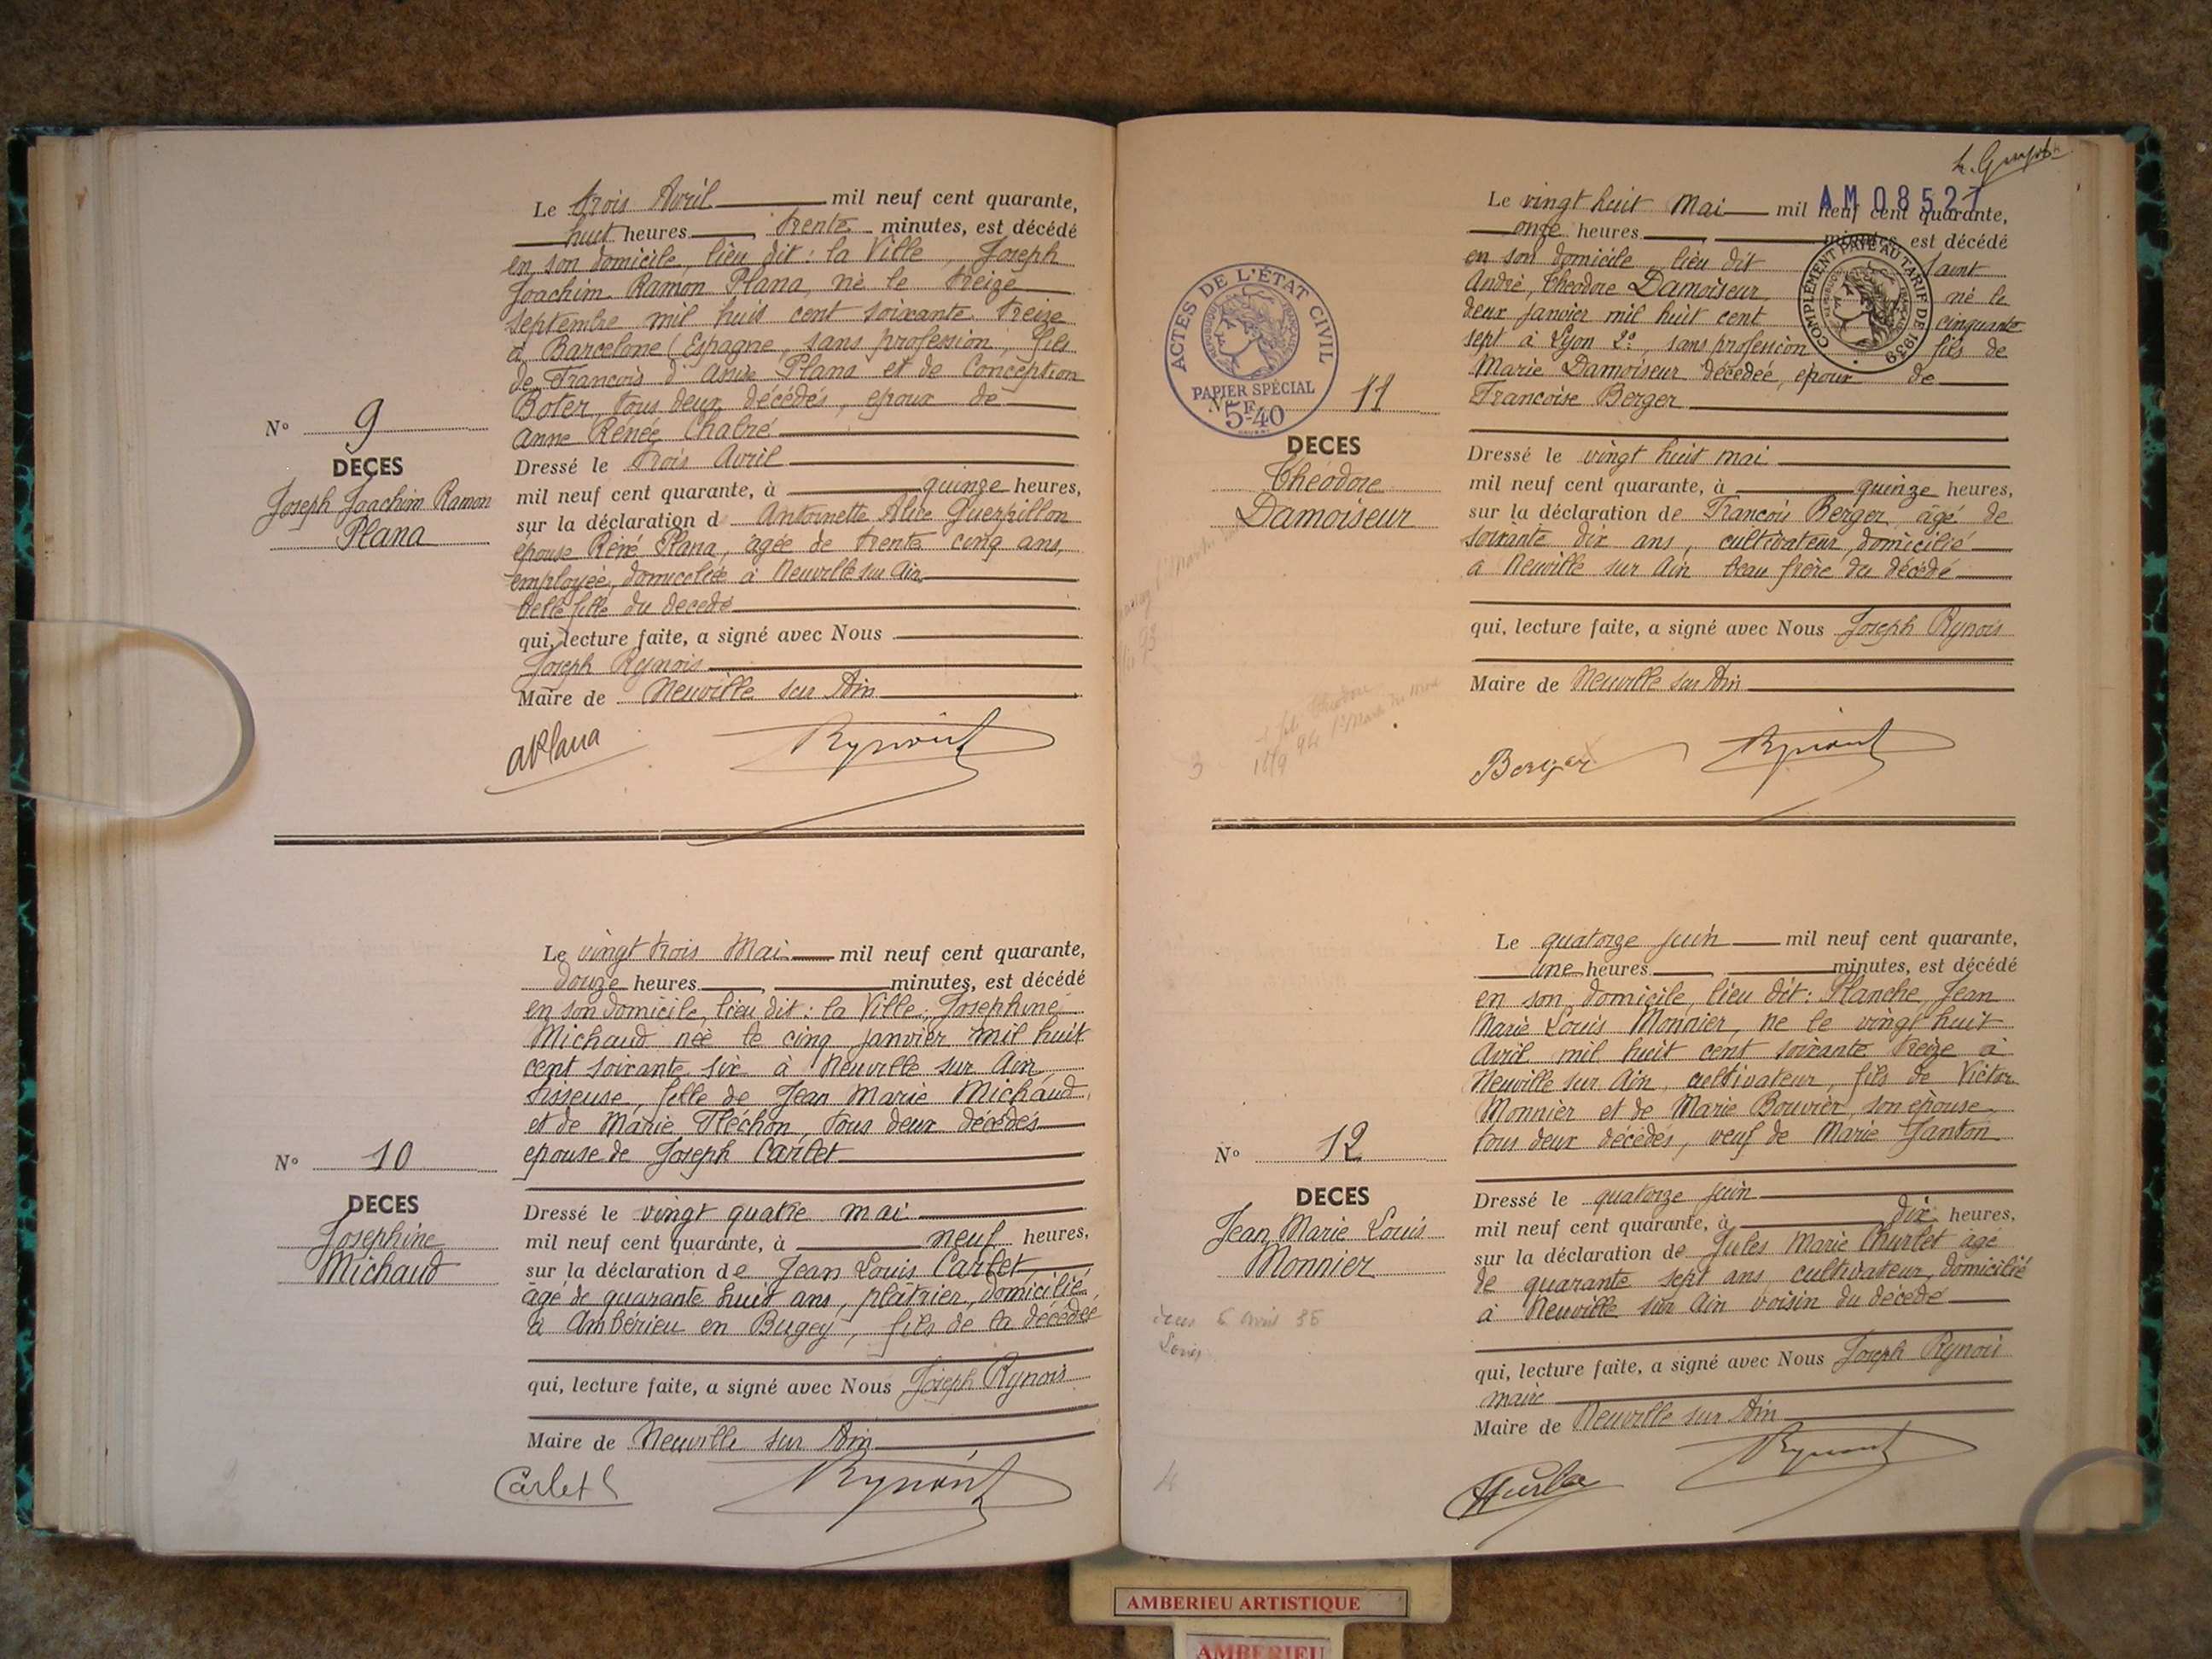 Le trois Avril mil neuf cent quarante,
huit heures trente minutes, est décédé
en son domicile, lieu dit : la Ville, Joseph
Joachim Ramon Plana, né le treize
septembre mil huit cent soixante treize
à Barcelone (Espagne, sans profession, fils
de François d' Plana et de Conception
Boter, tous deux décédés, epoux de
Anne Renée Chatré
N° 9
DECES
Joseph Joachim Ramon
Plana
Dressé le trois Avril
mil neuf cent quarante, à quinze heures,
sur la déclaration d Antoinette Alice Guerpillon
epouse René Plana, agée de trente cinq ans,
employée, domiciliée à Neuville sur Ain
belle fille du decedé
qui, lecture faite, a signé avec Nous
Joseph Rynois
Maire de Neuville sur Ain
APlana Rynois
Le vingt trois Mai mil neuf cent quarante,
douze heures , minutes, est décédé
en son domicile, lieu dit : la Ville, Josephine
Michaud née le cinq janvier mil huit
cent soixante six à Neuville sur Ain,
tisseuse, fille de Jean Marie Michaud,
et de Marie Fléchon, tous deux décédés
epouse de Joseph Carlet
N° 10
DECES
Josephine
Michaud
Dressé le vingt quatre mai
mil neuf cent quarante, à neuf heures,
sur la déclaration de Jean Louis Carlet,
agé de quarante huit ans, plâtrier, domicilié
à Ambérieu en Bugey, fils de la décédée
qui, lecture faite, a signé avec Nous Joseph Rynois
Maire de Neuville sur Ain
Carlet Rynois
AM 08527
Le vingt huit Mai mil neuf cent quarante,
onze heures minutes est décédé
en son domicile, lieu dit Saint
André, Théodore Damoiseur, né le
deux janvier mil huit cent cinquante
sept à Lyon 2°, sans profession fils de
Marie Damoiseur décédée, epoux de
Francoise Berger
COMPLÉMENT PAYÉ AU TARIF DE 1939
ACTES DE L'ÉTAT CIVIL
PAPIER SPÉCIAL
5F.40
N° 11
DECES
Théodore
Damoiseur
Dressé le vingt huit mai
mil neuf cent quarante, à quinze heures,
sur la déclaration de Francois Berger, agé de
soixante dix ans, cultivateur, domicilié
à Neuville sur Ain beau frère du décédé
qui, lecture faite, a signé avec Nous Joseph Rynois
Maire de Neuville sur Ain
Berger Rynois
Le quatorze juin mil neuf cent quarante,
une heures , minutes, est décédé
en son domicile, lieu dit : Planche, Jean
Marie Louis Monnier, né le vingt huit
Avril mil huit cent soixante treize à
Neuville sur Ain, cultivateur, fils de Victor
Monnier et de Marie Bouvier, son epouse,
tous deux décédés, veuf de Marie Janton
N° 12
DECES
Jean Marie Louis
Monnier
Dressé le quatorze juin
mil neuf cent quarante, à dix heures,
sur la déclaration de Jules Marie Hurlet agé
de quarante sept ans, cultivateur, domicilié
à Neuville sur Ain voisin du décédé
qui, lecture faite, a signé avec Nous Joseph Rynois
maire
Maire de Neuville sur Ain
Rynois
AMBERIEU ARTISTIQUE
AMBERIEU